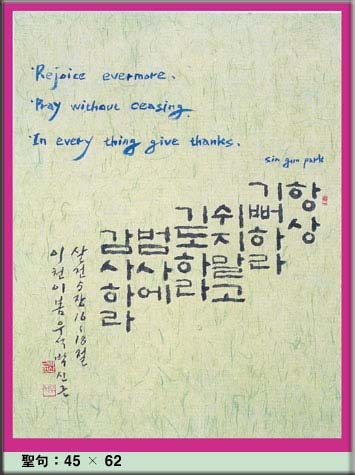 ·Rejoice evermore.
·Pray without ceasing.
·In every thing give thanks.
sin gun park
항상
기뻐하라
쉬지말고
기도하라
범사에
감사하라
살전 5장 16~18절
이천이 봄 우석 박신근
聖句：45 × 62